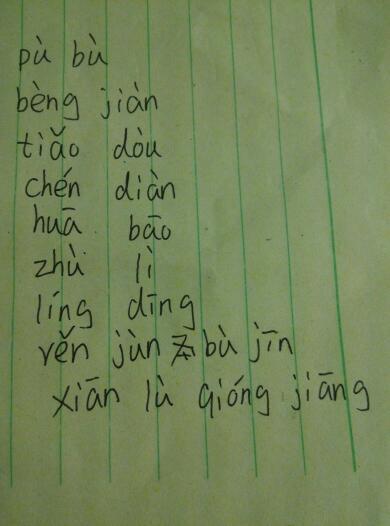 pù bù
bèng jiàn
tiǎo dòu
chén diàn
huā bāo
zhù lì
líng dīng
rěn jùn bù jīn
xiān lù qióng jiāng